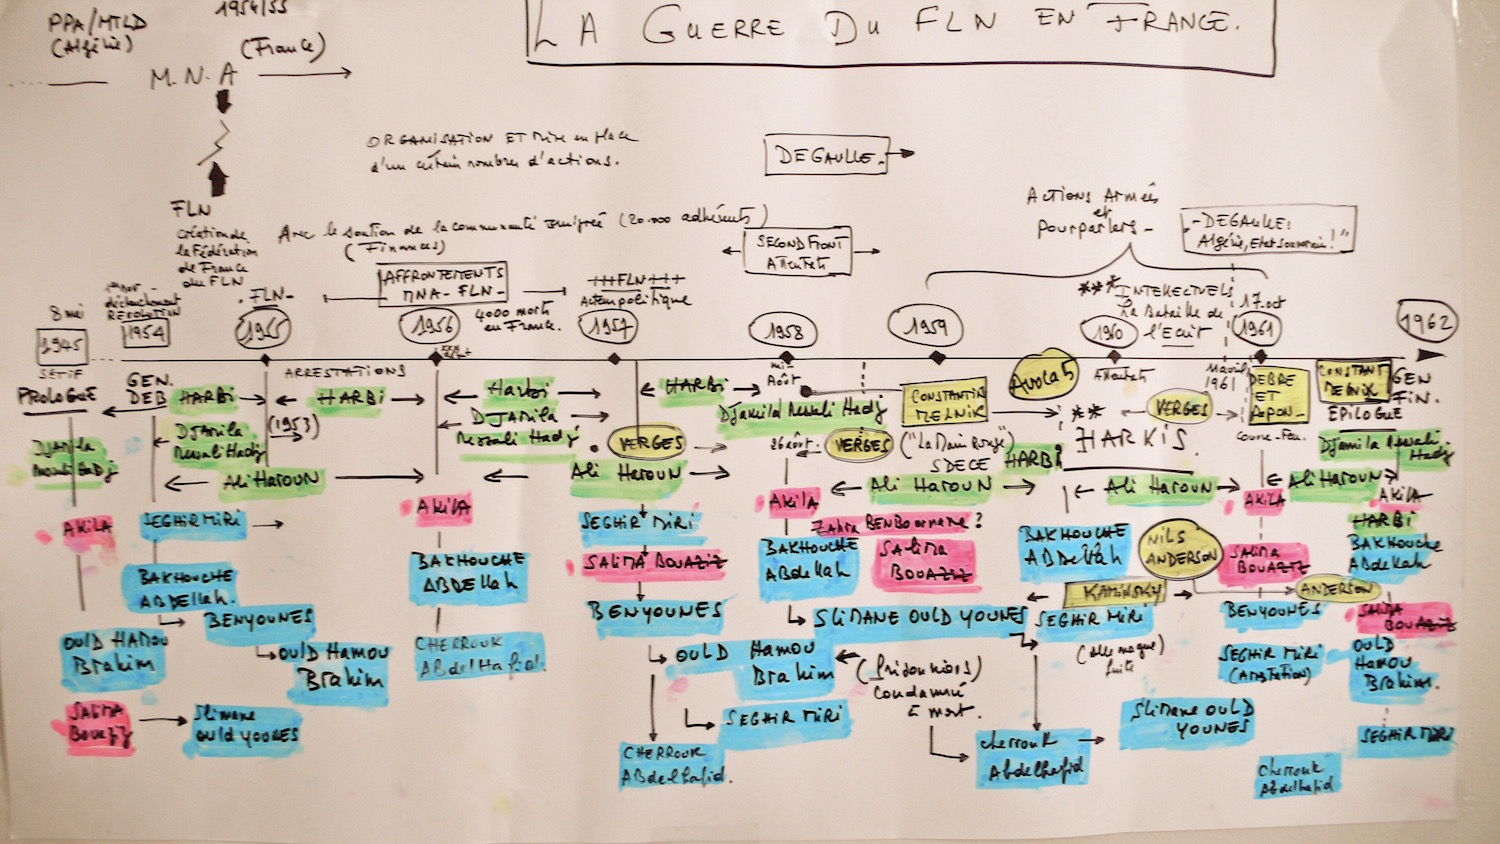 PPA/MTLD
(Algérie)
1954/55
(France)
M.N.A
LA GUERRE DU FLN EN FRANCE.
ORGANISATION ET Mise en place
d'un certain nombre d'actions.
DEGAULLE.
FLN
création de
la Fédération
de France
du FLN
Avec le soutien de la communauté émigrée (20.000 adhérents)
(Finances)
AFFRONTEMENTS
MNA-FLN-
4000 morts
en France.
FLN
Action politique
SECOND FRONT
Attentats
Actions Armées
et
pourparlers-
-DEGAULLE:
Algérie, Etat souverain!"
*** INTELLECTUELS
La Bataille de
l'Ecrit
17.oct
8 mai
1945
SETIF
1er nov-
déclenchement
REVOLUTION
1954
-FLN-
1955
1956
1957
1958
1959
1960
1961
1962
PROLOGUE
GEN.
DEB
HARBI
ARRESTATIONS
HARBI
(1953)
Harbi
HARBI
mi-
Août
CONSTANTIN
MELNIK
Avocats
Attentats
1961
VERGES
DEBRE
ET
PAPON-
Couvre-Feu.
CONSTANT
MELNIK
GEN
FIN.
EPILOGUE
Djamila
Messali Hadj
DJAMILA
Messali Hadj
DJAMILA
Messali Hadj
VERGES
Djamila Messali Hadj
26 août.
VERGES
("La Main Rouge")
SDECE
HARBI
**
HARKIS.
Djamila Messali-
Hadj
Ali HAROUN
Ali HAROUN
Ali HAROUN
Ali HAROUN
Ali HAROUN
AKILA
SEGHIR MIRI
AKILA
SEGHIR MIRI
AKILA
Zahra BENBOURNANE?
AKILA
AKILA
HARBI
BAKHOUCHE
ABDELLAH.
BAKHOUCHE
ABDELLAH
SALIMA BOUAZIZ
BAKHOUCHE
ABDELLAH
SALIMA
BOUAZIZ
BAKHOUCHE
ABDELLAH
NILS
ANDERSON
SALIMA
BOUAZIZ
BAKHOUCHE
Abdellah
BENYOUNES
BENYOUNES
SLIMANE OULD YOUNES
KAMINSKY
SEGHIR MIRI
ANDERSON
BENYOUNES
SALIMA
BOUAZIZ
OULD HAMOU
Brahim
OULD HAMOU
Brahim
CHERROUK
ABdelHafid.
OULD HAMOU
Brahim
(Prisonniers)
condamné
à mort.
(allemagne)
fuite
SEGHIR MIRI
(ARRESTATION)
OULD
HAMOU
Brahim.
SALIMA
Bouazz
Slimane
Ould YOUNES
SEGHIR MIRI
CHERROUK
ABdelhafid.
Cherrouk
Abdelhafid
SLIMANE OULD
YOUNES
SEGHIR MIRI
Cherrouk
Abdelhafid